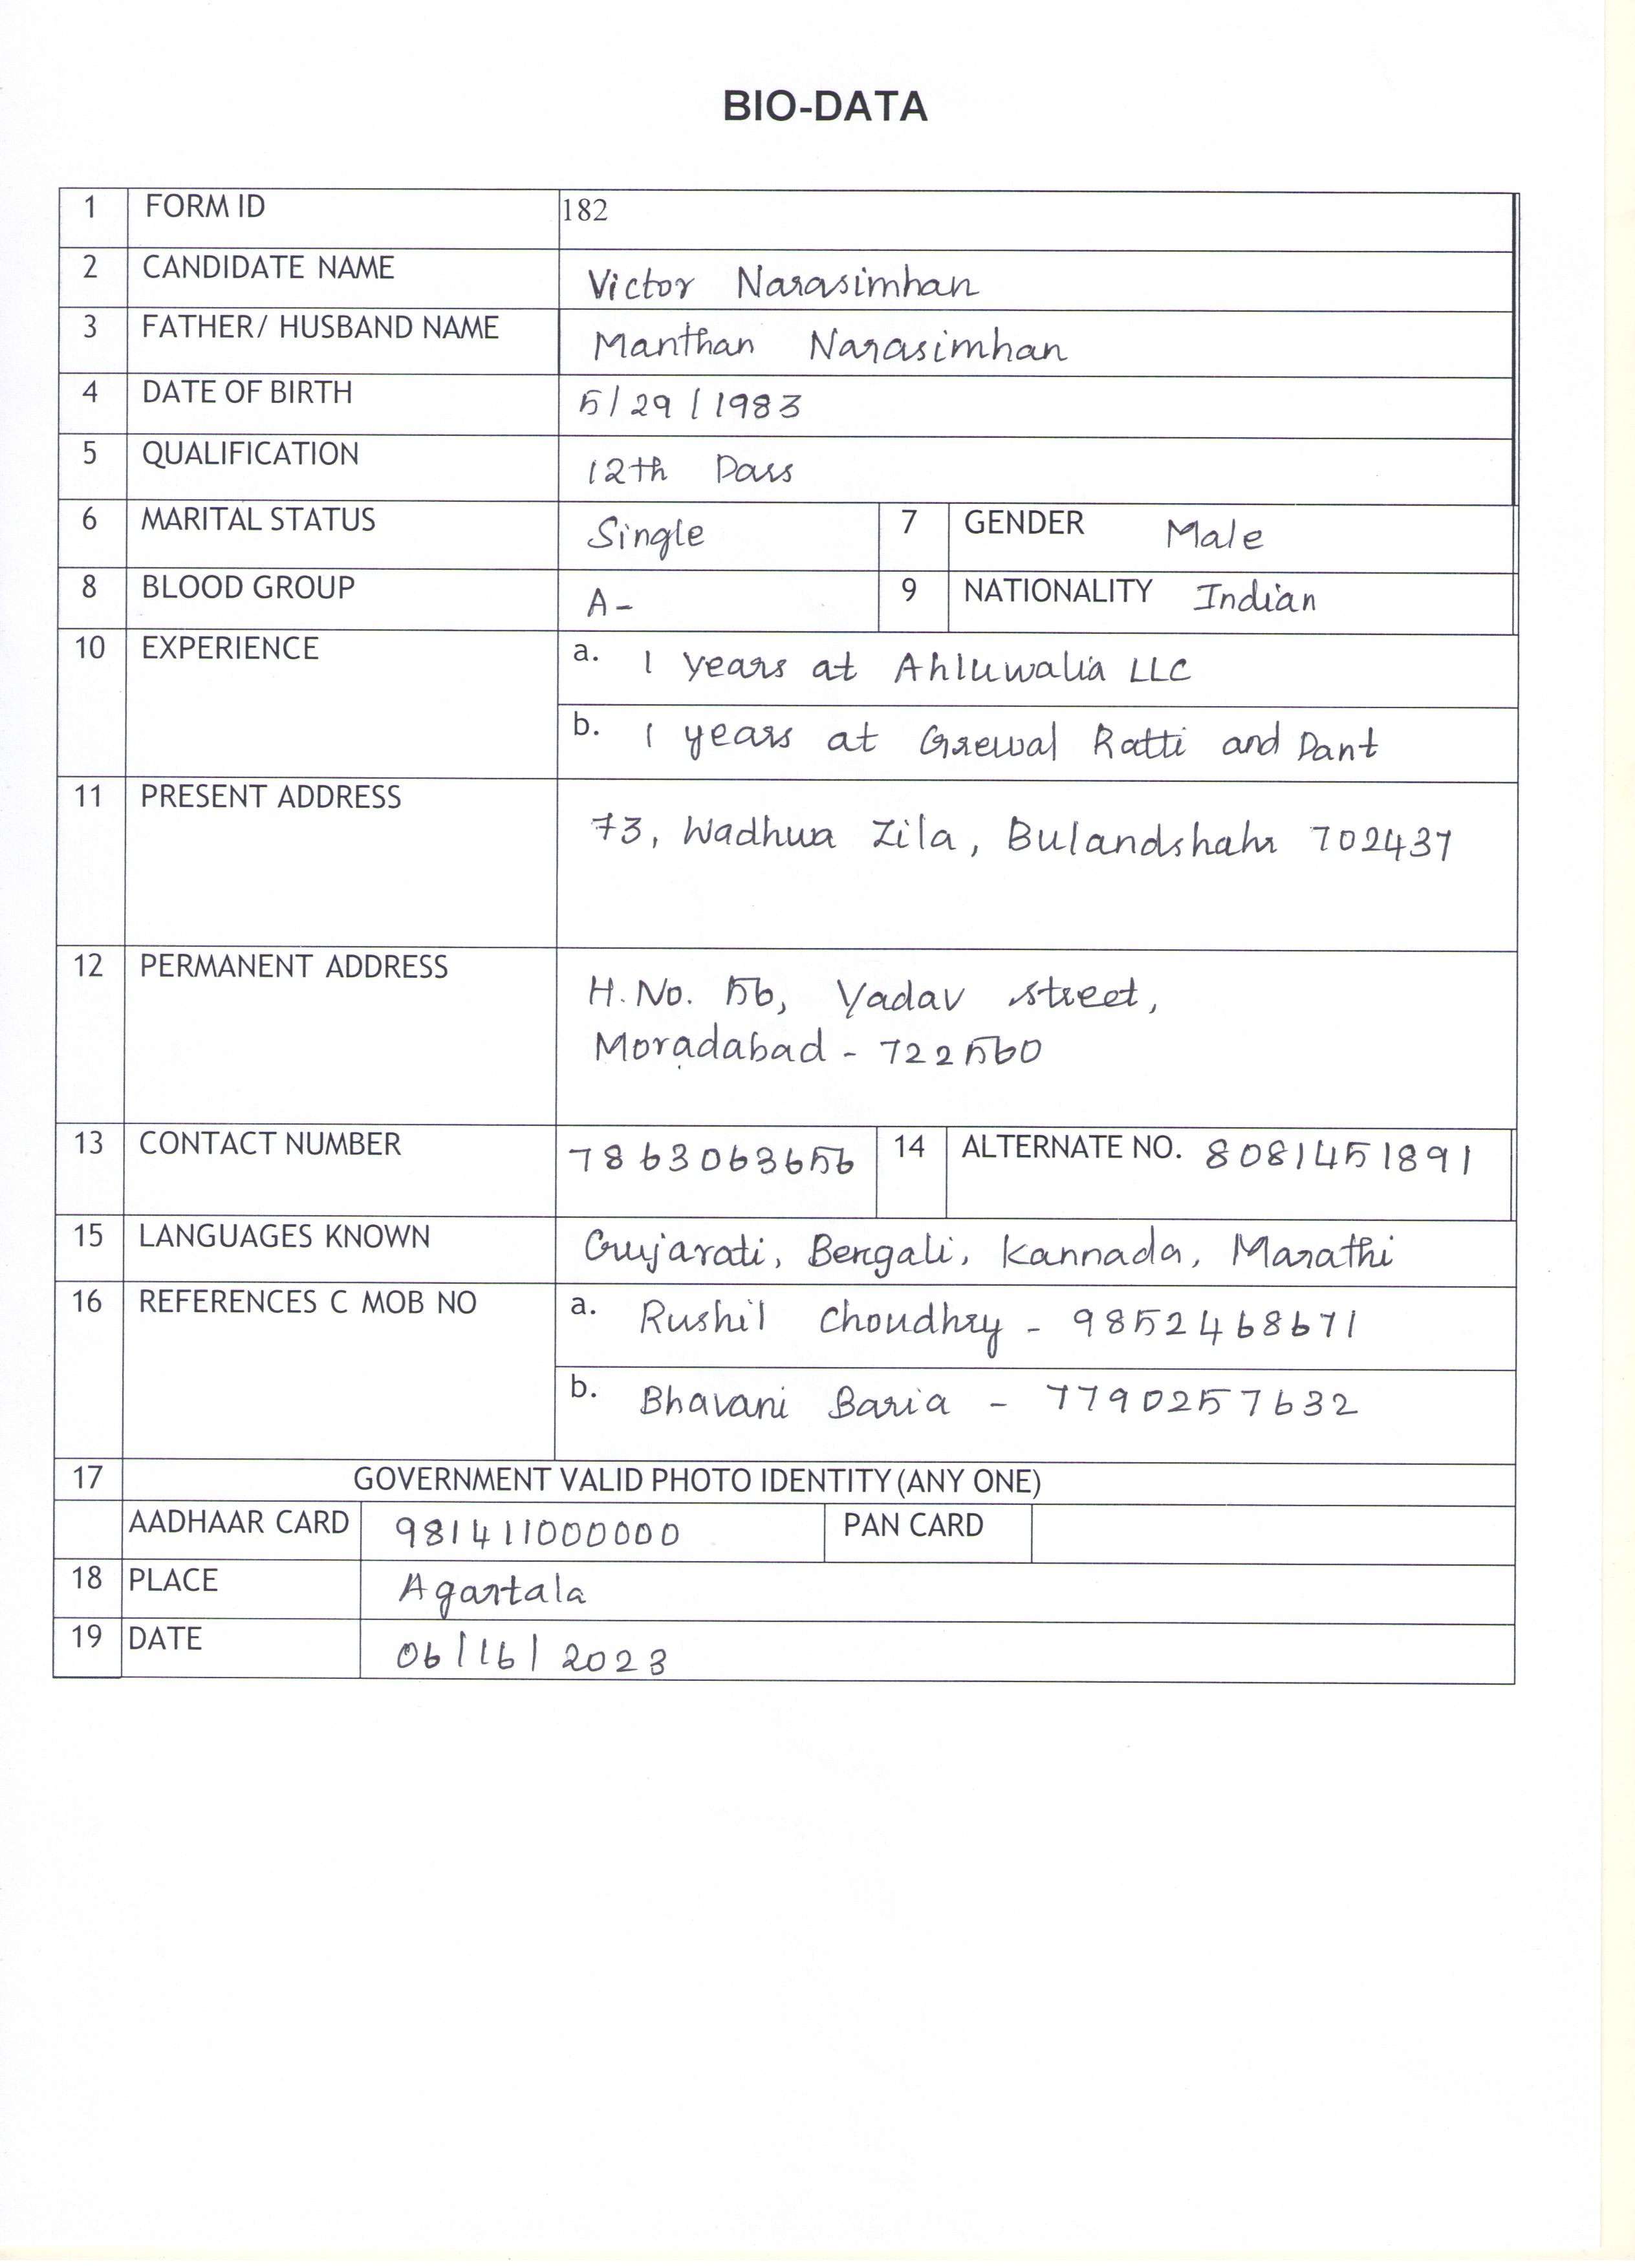 BIO-DATA
1 FORM ID 182
2 CANDIDATE NAME Victor Narasimhan
3 FATHER/ HUSBAND NAME Manthan Narasimhan
4 DATE OF BIRTH 5/29/1983
5 QUALIFICATION 12th Pass
6 MARITAL STATUS Single 7 GENDER Male
8 BLOOD GROUP A- 9 NATIONALITY Indian
10 EXPERIENCE a. 1 years at Ahluwalia LLC
b. 1 years at Grewal Ratti and Pant
11 PRESENT ADDRESS
73, Wadhwa Zila, Bulandshahr 702437
12 PERMANENT ADDRESS
H.No. 56, Yadav street,
Moradabad - 722560
13 CONTACT NUMBER 7863063656 14 ALTERNATE NO. 8081451891
15 LANGUAGES KNOWN Gujarati, Bengali, Kannada, Marathi
16 REFERENCES C MOB NO a. Rushil Choudhry - 9852468671
b. Bhavani Baria - 7790257632
17 GOVERNMENT VALID PHOTO IDENTITY (ANY ONE)
AADHAAR CARD 981411000000 PAN CARD
18 PLACE Agartala
19 DATE 06/16/2023